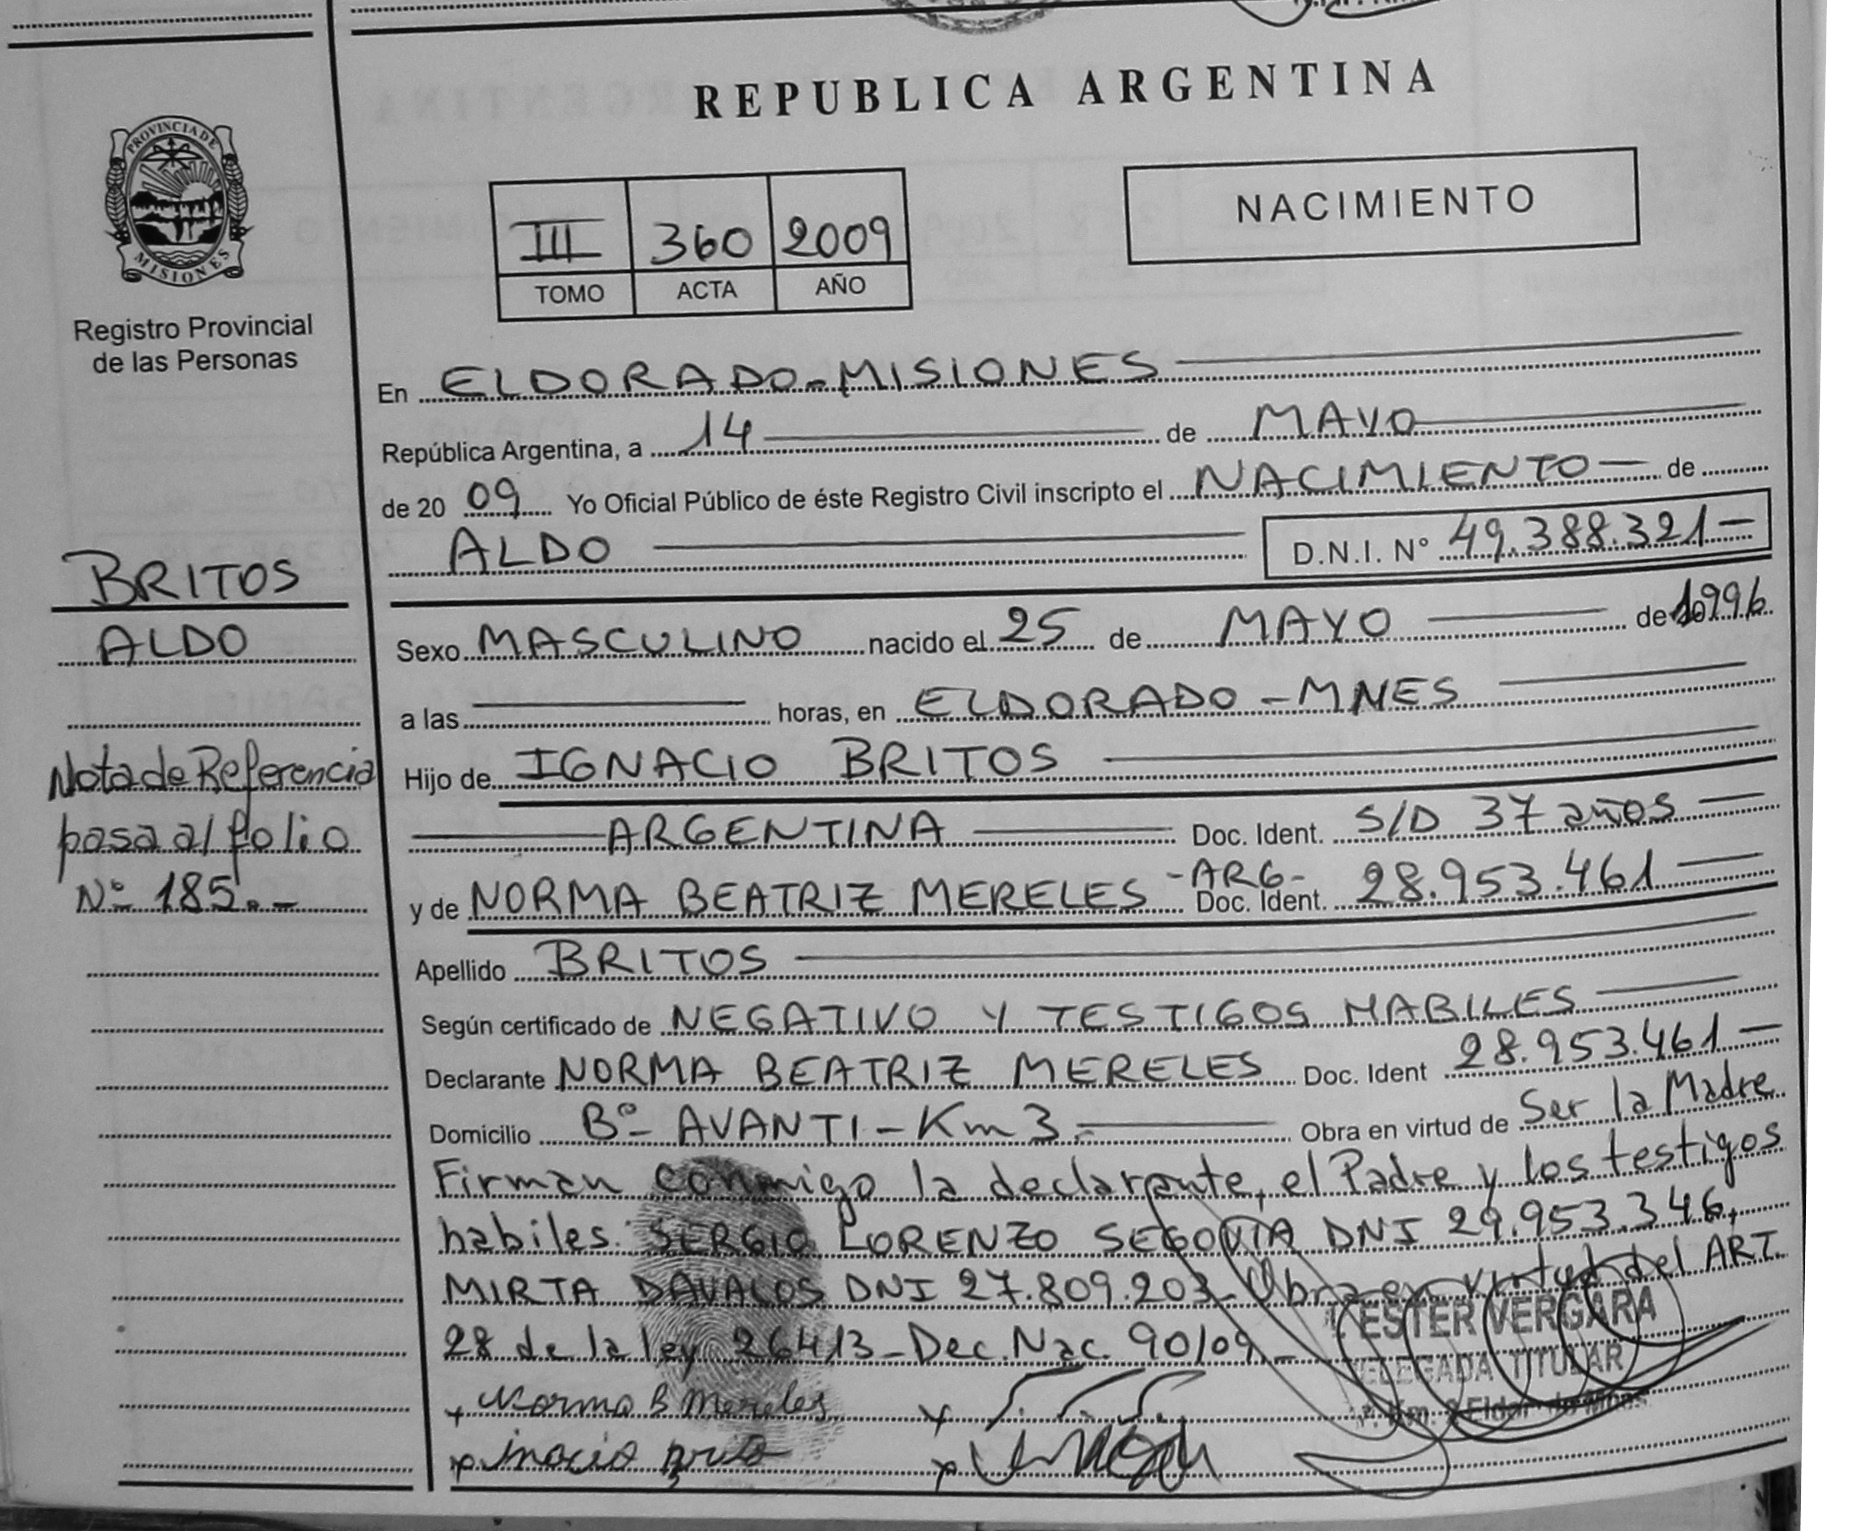 REPUBLICA ARGENTINA
PROVINCIA DE
MISIONES
Registro Provincial
de las Personas
III 360 2009
TOMO ACTA AÑO
NACIMIENTO
En ELDORADO-MISIONES
República Argentina, a 14 de MAYO
de 20 09 Yo Oficial Público de éste Registro Civil inscripto el NACIMIENTO de
ALDO D.N.I. N° 49.388.321
BRITOS
ALDO
Nota de Referencia
pasa al folio
Nº 185.-
Sexo MASCULINO nacido el 25 de MAYO de 1996
a las horas, en ELDORADO-MNES
Hijo de IGNACIO BRITOS
ARGENTINA Doc. Ident. S/D 37 años
y de NORMA BEATRIZ MERELES -ARG- Doc. Ident. 28.953.461
Apellido BRITOS
Según certificado de NEGATIVO Y TESTIGOS HABILES
Declarante NORMA BEATRIZ MERELES Doc. Ident 28.953.461
Domicilio Bº AVANTI - Km 3.- Obra en virtud de Ser la Madre
Firman conmigo la declarante, el Padre y los testigos
habiles. SERGIO LORENZO SEGOVIA DNI 29.953.346,
MIRTA DAVALOS DNI 27.809.203 Obra en virtud del ART.
28 de la ley 26413-Dec. Nac. 90/09 -
ESTER VERGARA
DELEGADA TITULAR
x Norma B Mereles x
x x